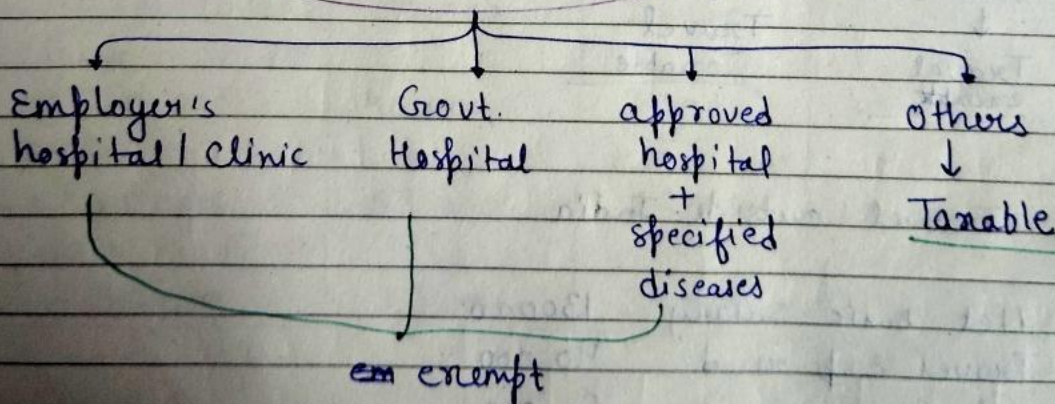 Employer's
hospital / Clinic
Govt.
Hospital
approved
hospital
+
specified
diseases
Others
↓
Taxable
exempt